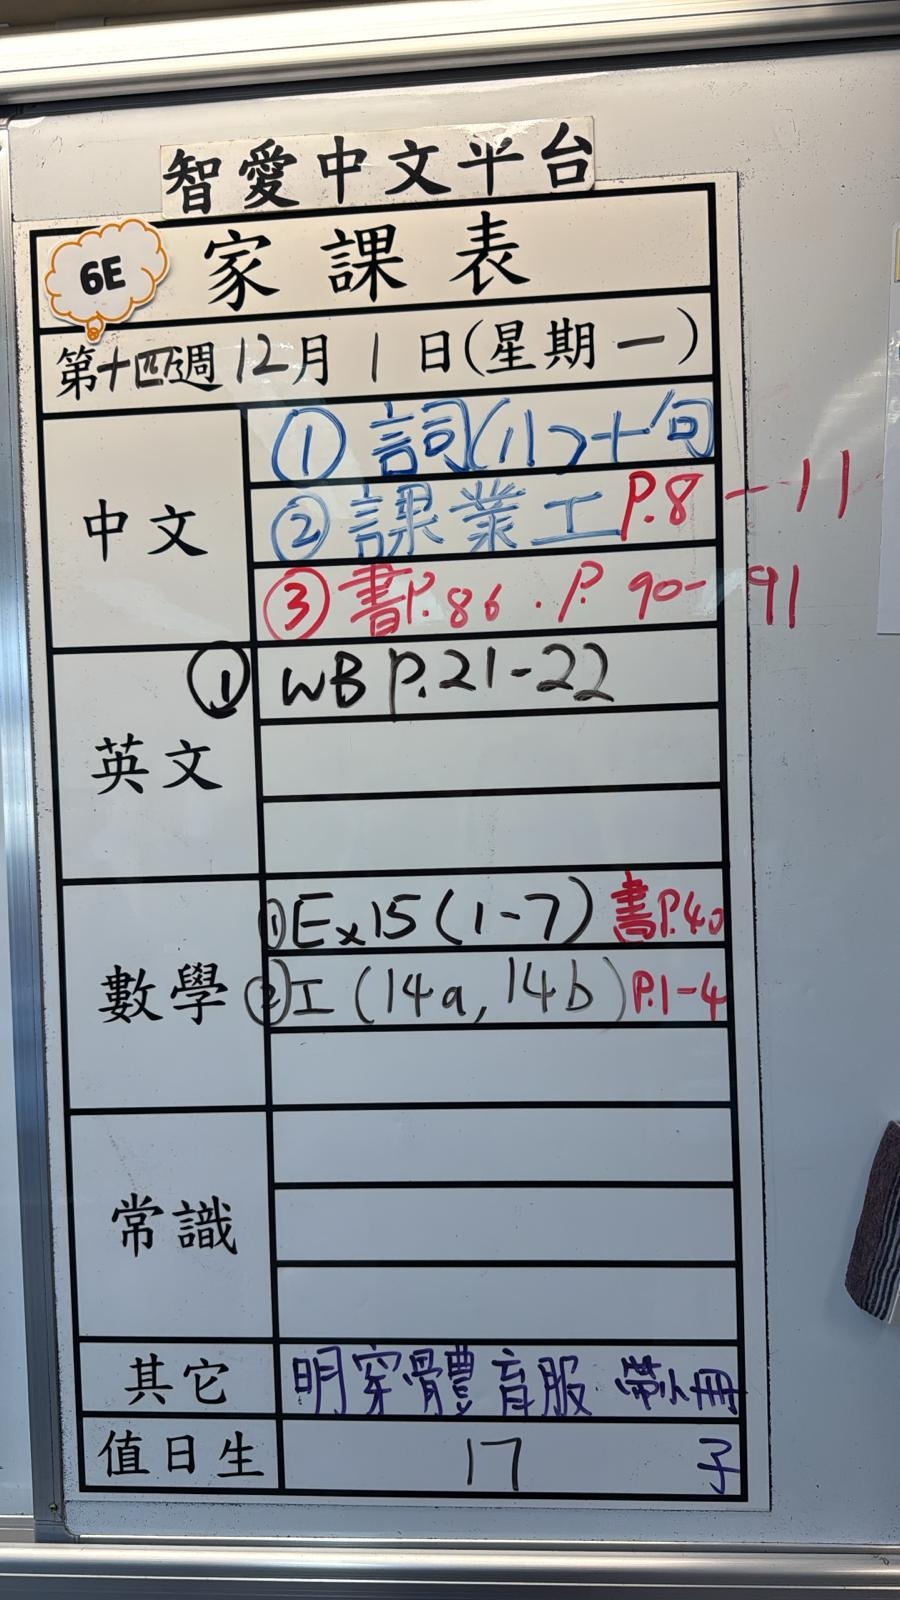 智愛中文平台
6E 家課表
第十四週 12月 1 日(星期一)
中文
① 詞(11)+句
② 課業工 P.8-11
③ 書P.86 . P. 90-91
英文
① WB P.21-22
數學
① Ex15 (1-7) 書P.40
② 工 (14a, 14b) P.1-4
常識
其它 明穿體育服 帶小冊
子
值日生 17